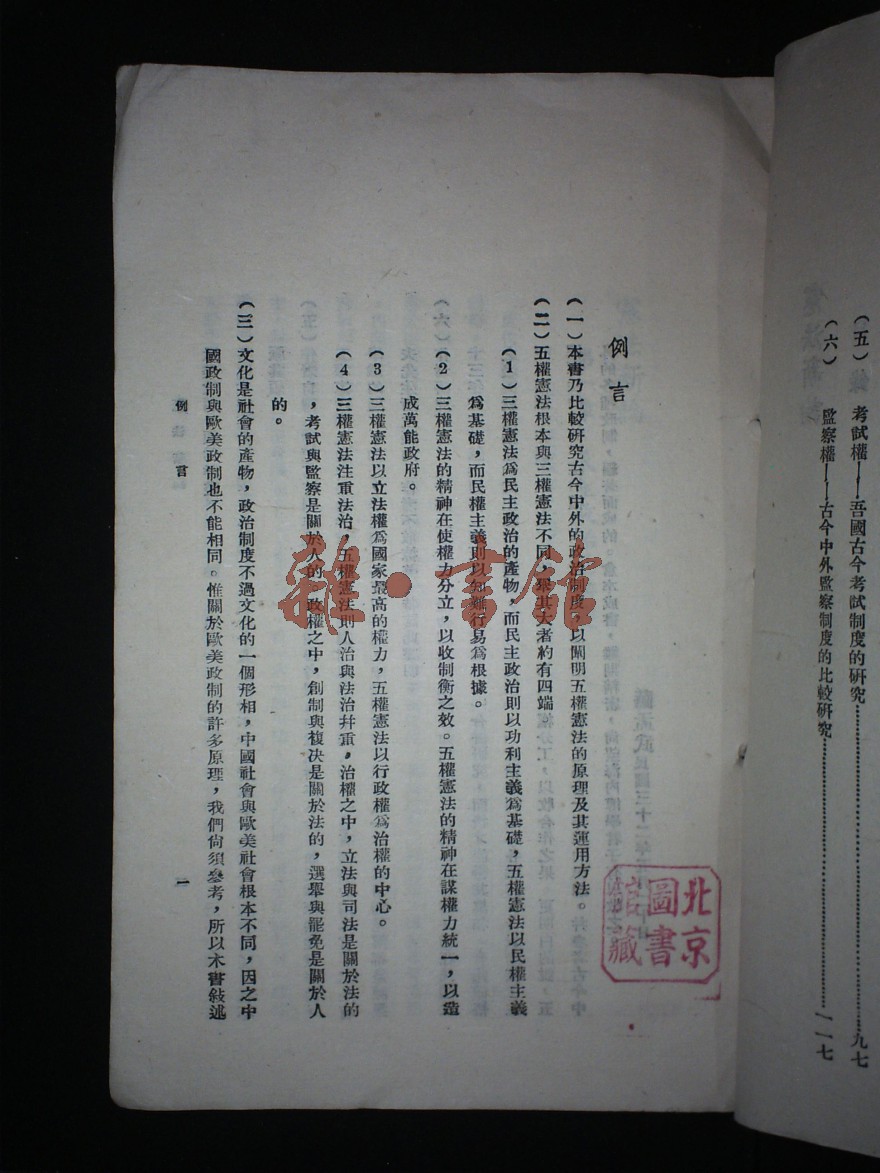 （五）
考試權——吾國古今考試制度的研究……九七
（六）
監察權——古今中外監察制度的比較研究……一一七
例言
（一）本書乃比較研究古今中外的政治制度，以闡明五權憲法的原理及其運用方法。
（二）五權憲法根本與三權憲法不同，舉其大者約有四端
（1）三權憲法爲民主政治的產物，而民主政治則以功利主義爲基礎，五權憲法以民權主義
爲基礎，而民權主義則以知難行易爲根據。
（2）三權憲法的精神在使權力分立，以收制衡之效。五權憲法的精神在謀權力統一，以造
成萬能政府。
（3）三權憲法以立法權爲國家最高的權力，五權憲法以行政權爲治權的中心。
（4）三權憲法注重法治，五權憲法則人治與法治幷重，治權之中，立法與司法是關於法的
，考試與監察是關於人的。政權之中，創制與複决是關於法的，選舉與罷免是關於人
的。
（三）文化是社會的產物，政治制度不過文化的一個形相，中國社會與歐美社會根本不同，因之中
國政制與歐美政制也不能相同。惟關於歐美政制的許多原理，我們尙須參考，所以本書敍述
例言
一
北京
圖書
館藏
雜·書館